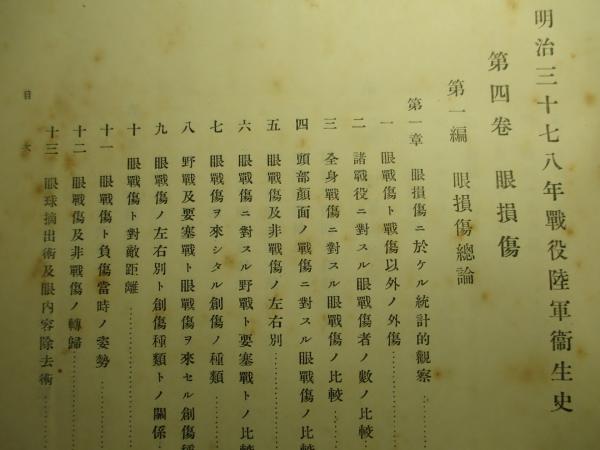 明治三十七八年戰役陸軍衞生史
第四卷 眼損傷
第一編 眼損傷總論
第一章 眼損傷ニ於ケル統計的觀察
一 眼戰傷ト戰傷以外ノ外傷
二 諸戰役ニ對スル眼戰傷者ノ數ノ比較
三 全身戰傷ニ對スル眼戰傷ノ比較
四 頭部顔面ノ戰傷ニ對スル眼戰傷ノ比較
五 眼戰傷及非戰傷ノ左右別
六 眼戰傷ニ對スル野戰ト要塞戰トノ比較
七 眼戰傷ヲ來シタル創傷ノ種類
八 野戰及要塞戰ト眼戰傷ヲ來セル創傷種
九 眼戰傷ノ左右別ト創傷種類トノ關係
十 眼戰傷ト對敵距離
十一 眼戰傷ト負傷當時ノ姿勢
十二 眼戰傷及非戰傷ノ轉歸
十三 眼球摘出術及眼內容除去術
目次